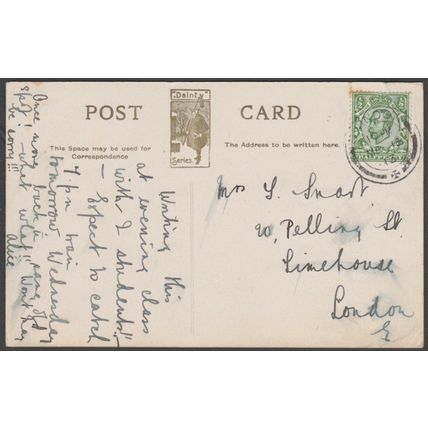 POST CARD
"Dainty"
Series.
This Space may be used for
Correspondence
The Address to be written here.
Writing this
at evening class
with 2 students!!
— Expect to catch
7 pm train
tomorrow Wednesday
Once more back in
spot! — what what!! Won't
be sorry!!!
Alice
Mrs S. Smart,
20, Pelling St
Limehouse
London
E